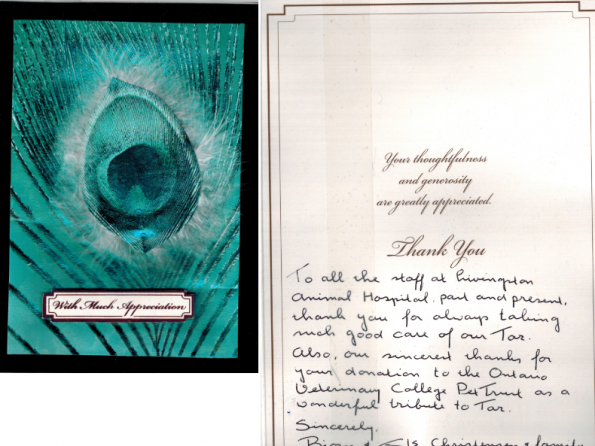 With Much Appreciation
Your thoughtfulness
and generosity
are greatly appreciated.
Thank You
To all the staff at Livingston
Animal Hospital, past and present,
thank you for always taking
such good care of our Taz.
Also, our sincerest thanks for
your donation to the Ontario
Veterinary College Pet Trust as a
wonderful tribute to Taz.
Sincerely,
& family